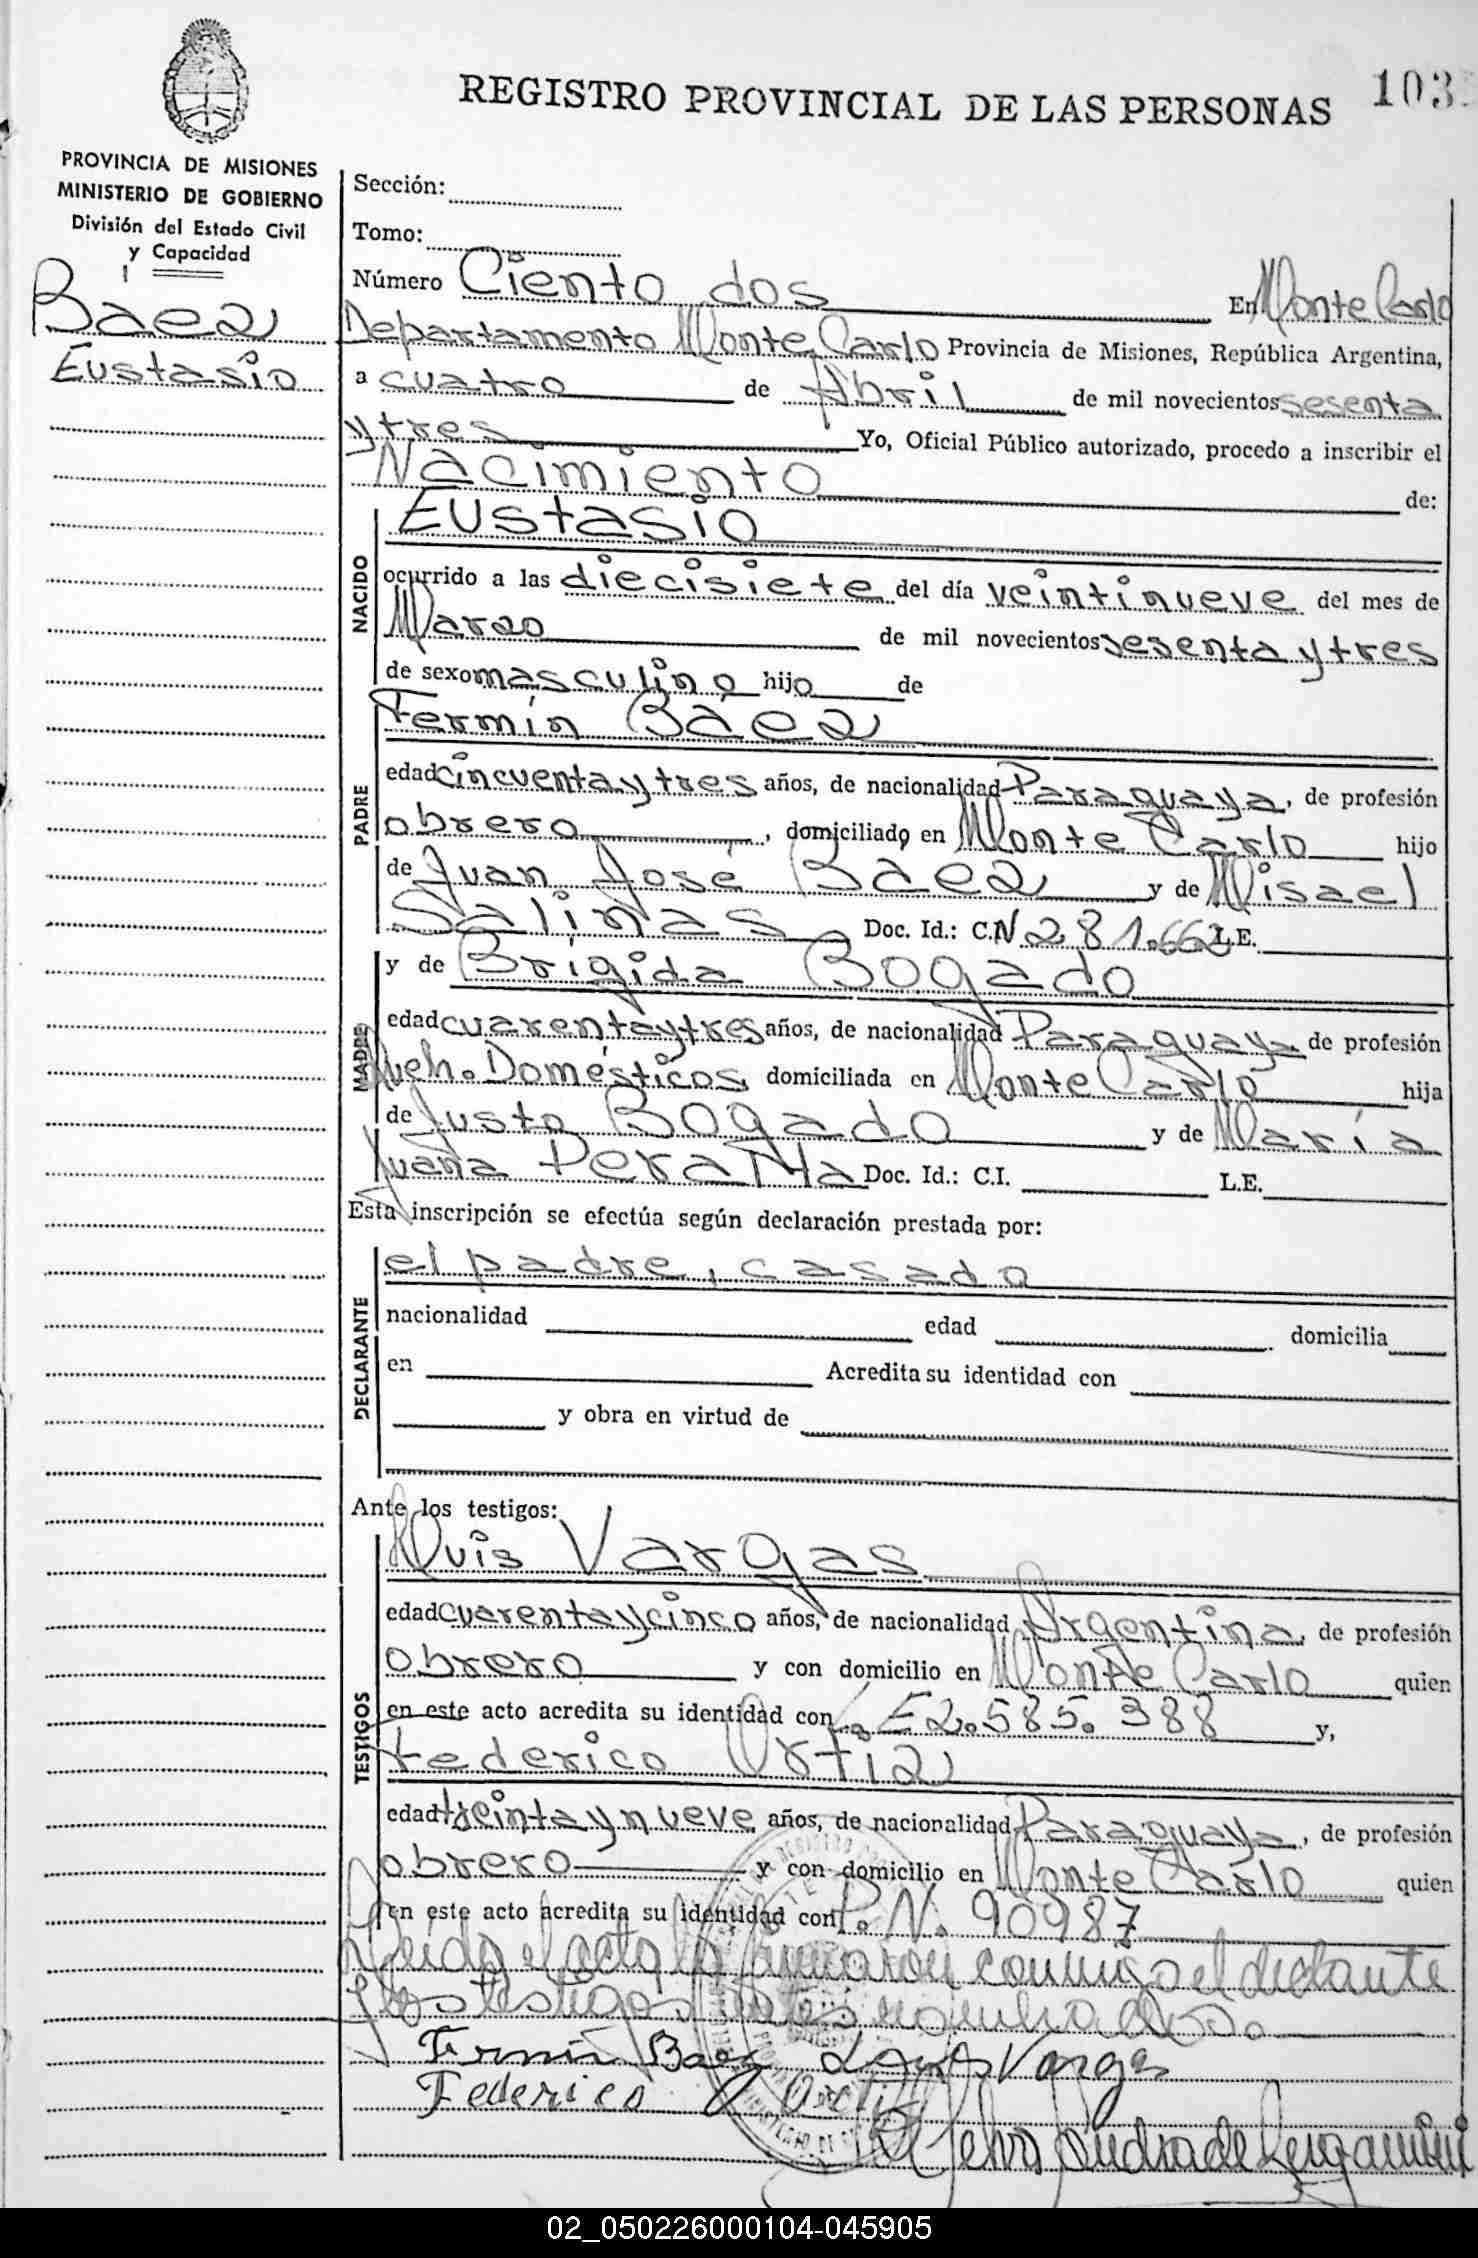 REGISTRO PROVINCIAL DE LAS PERSONAS 103
PROVINCIA DE MISIONES
MINISTERIO DE GOBIERNO
División del Estado Civil
y Capacidad
Báez
Eustasio
Sección:
Tomo:
Número Ciento dos En Monte Carlo
Departamento Monte Carlo Provincia de Misiones, República Argentina,
a cuatro de Abril de mil novecientos sesenta
y tres Yo, Oficial Público autorizado, procedo a inscribir el
Nacimiento de:
NACIDO
Eustasio
ocurrido a las diecisiete del día veintinueve del mes de
Marzo de mil novecientos sesenta y tres
de sexo masculino hijo de
PADRE
Fermín Báez
edad cincuenta y tres años, de nacionalidad Paraguaya, de profesión
obrero, domiciliado en Monte Carlo hijo
de Juan José Báez y de Misael
Salinas Doc. Id.: C.N 281.662 L.E.
MADRE
y de Brígida Bogado
edad cuarenta y tres años, de nacionalidad Paraguaya de profesión
Queh. Domésticos, domiciliada en Monte Carlo hija
de Justo Bogado y de María
Juana Peralta Doc. Id.: C.I. L.E.
Esta inscripción se efectúa según declaración prestada por:
DECLARANTE
el padre, casado
nacionalidad edad domicilia
en Acredita su identidad con
y obra en virtud de
Ante los testigos:
TESTIGOS
Luis Vargas
edad cuarenta y cinco años, de nacionalidad Argentina, de profesión
obrero y con domicilio en Monte Carlo quien
en este acto acredita su identidad con L. E 2.585.388 y,
Federico Ortiz
edad treinta y nueve años, de nacionalidad Paraguaya, de profesión
obrero y con domicilio en Monte Carlo quien
en este acto acredita su identidad con P. N. 90987
Leida el acta la firmaron conmigo el declante
y los testigos antes nombrados.
Fermin Baez Luis Vargas
Federico Ortiz
02_050226000104-045905